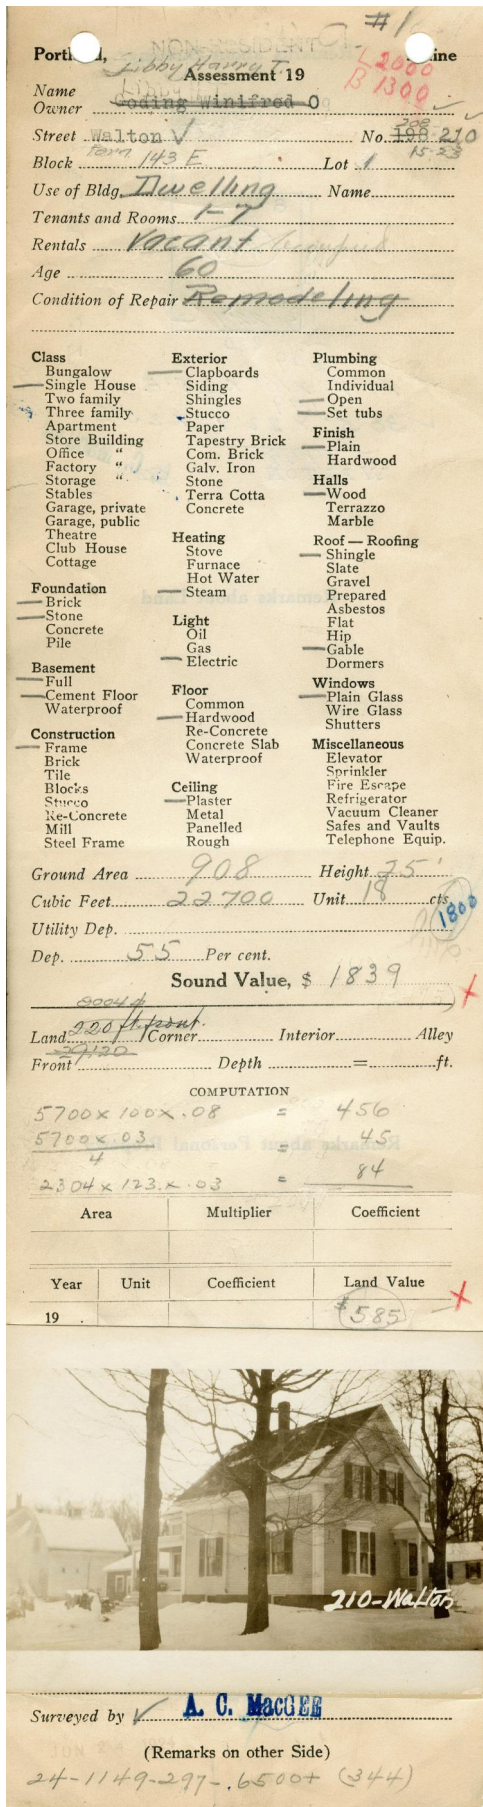 #1
NON-RESIDENT
Portland, Maine
Libby Harry T.
Assessment 19
L 2000
B 1300
Name
Owner Coding Winifred O
208
Street Walton No. 198 210
15-23
Block 143 E Lot 1
Use of Bldg. Dwelling Name
Tenants and Rooms 1-7
Rentals Vacant
Age 60
Condition of Repair Remodeling
Class
Bungalow
Single House
Two family
Three family
Apartment
Store Building
Office "
Factory "
Storage "
Stables
Garage, private
Garage, public
Theatre
Club House
Cottage
Foundation
Brick
Stone
Concrete
Pile
Basement
Full
Cement Floor
Waterproof
Construction
Frame
Brick
Tile
Blocks
Stucco
Re-Concrete
Mill
Steel Frame
Exterior
Clapboards
Siding
Shingles
Stucco
Paper
Tapestry Brick
Com. Brick
Galv. Iron
Stone
Terra Cotta
Concrete
Heating
Stove
Furnace
Hot Water
Steam
Light
Oil
Gas
Electric
Floor
Common
Hardwood
Re-Concrete
Concrete Slab
Waterproof
Ceiling
Plaster
Metal
Panelled
Rough
Plumbing
Common
Individual
Open
Set tubs
Finish
Plain
Hardwood
Halls
Wood
Terrazzo
Marble
Roof — Roofing
Shingle
Slate
Gravel
Prepared
Asbestos
Flat
Hip
Gable
Dormers
Windows
Plain Glass
Wire Glass
Shutters
Miscellaneous
Elevator
Sprinkler
Fire Escape
Refrigerator
Vacuum Cleaner
Safes and Vaults
Telephone Equip.
Ground Area 908 Height 25'
Cubic Feet 22700 Unit 18 cts.
1800
Utility Dep.
Dep. 55 Per cent.
Sound Value, $ 1839
8004
Land 220 ft front. Corner Interior Alley
29120
Front Depth = ft.
COMPUTATION
5700 x 100 x .08 = 456
5700 x .03 = 45
4
2304 x 123. x .03 = 84
Area Multiplier Coefficient
Year Unit Coefficient Land Value
19 $585
210-Walton
Surveyed by A. C. MacGEE
(Remarks on other Side)
24-1149-297-.6500+ (344)